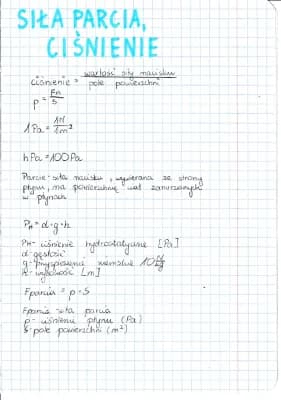 SIŁA PARCIA,
CIŚNIENIE
ciśnienie = wartość siły nacisku / pole powierzchni
p = Fn / S
1 Pa = 1N / 1m²
hPa = 100 Pa
Parcie - siła nacisku, wywierana ze strony
płynu, na powierzchnię ciał zanurzonych
w płynach
Pₕ = d·g·h
Pₕ - ciśnienie hydrostatyczne [Pa]
d - gęstość
g - przyspieszenie ziemskie 10 N/kg
h - wysokość [m]
Fparcia = p·S
Fparcia - siła parcia
p - ciśnienie płynu (Pa)
S - pole powierzchni (m²)